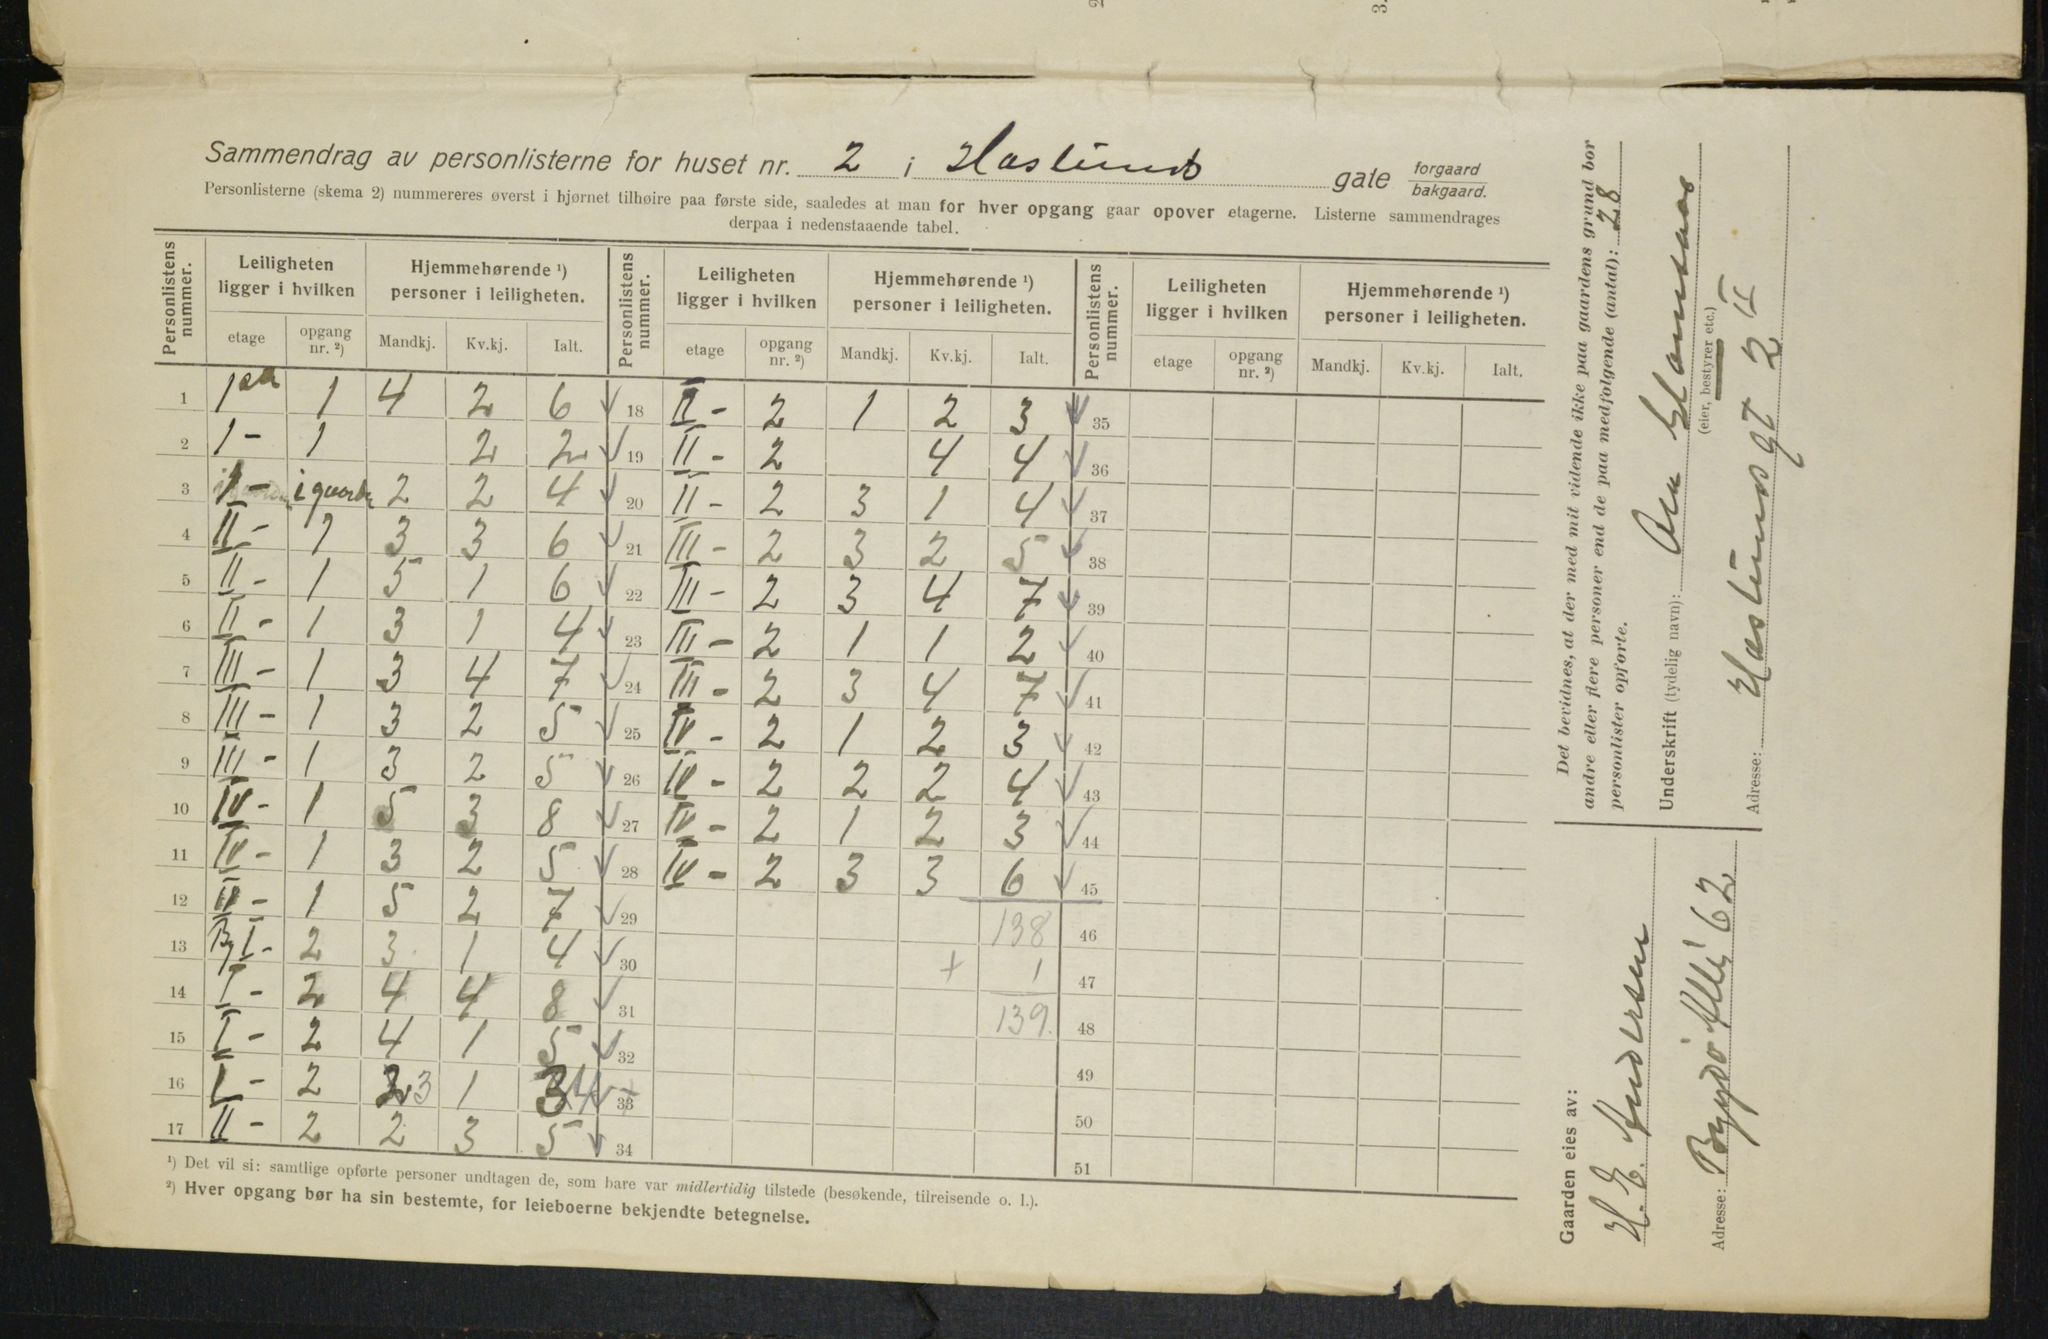 Sammendrag av personlisterne for huset nr. 2 i Haslunds gate forgaard bakgaard.
Personlisterne (skema 2) nummereres øverst i hjørnet tilhøire paa første side, saaledes at man for hver opgang gaar opover etagerne. Listerne sammendrages
derpaa i nedenstaaende tabel.
Personlistens nummer. Leiligheten ligger i hvilken Hjemmehørende ¹) personer i leiligheten. Personlistens nummer. Leiligheten ligger i hvilken Hjemmehørende ¹) personer i leiligheten. Personlistens nummer. Leiligheten ligger i hvilken Hjemmehørende ¹) personer i leiligheten.
etage opgang nr. ²) Mandkj. Kv.kj. Ialt. etage opgang nr. ²) Mandkj. Kv.kj. Ialt. etage opgang nr. ²) Mandkj. Kv.kj. Ialt.
1 1 4 2 6 18 II - 2 1 2 3 35
2 1 - 1 2 2 19 II - 2 4 4 36
3 1 - i gaarden 2 2 4 20 II - 2 3 1 4 37
4 II - 1 3 3 6 21 III - 2 3 2 5 38
5 II - 1 5 1 6 22 III - 2 3 4 7 39
6 II - 1 3 1 4 23 III - 2 1 1 2 40
7 III - 1 3 4 7 24 III - 2 3 4 7 41
8 III - 1 3 2 5 25 IV - 2 1 2 3 42
9 III - 1 3 2 5 26 IV - 2 2 2 4 43
10 IV - 1 5 3 8 27 IV - 2 1 2 3 44
11 IV - 1 3 2 5 28 IV - 2 3 3 6 45
12 IV - 1 5 2 7 29 138 46
13 I - 2 3 1 4 30 + 1 47
14 I - 2 4 4 8 31 139. 48
15 I - 2 4 1 5 32 49
16 I - 2 2 3 1 3 4 33 50
17 II - 2 2 3 5 34 51
¹) Det vil si: samtlige opførte personer undtagen de, som bare var midlertidig tilstede (besøkende, tilreisende o. l.).
²) Hver opgang bør ha sin bestemte, for leieboerne bekjendte betegnelse.
Det bevidnes, at der med mit vidende ikke paa gaardens grund bor
andre eller flere personer end de paa medfølgende (antal): 28
personlister opførte.
Underskrift (tydelig navn):
(eier, bestyrer etc.)
Adresse: Haslunds gt 2 II
Gaarden eies av:
H. E. Andersen
Adresse: Bygdø Allé 62